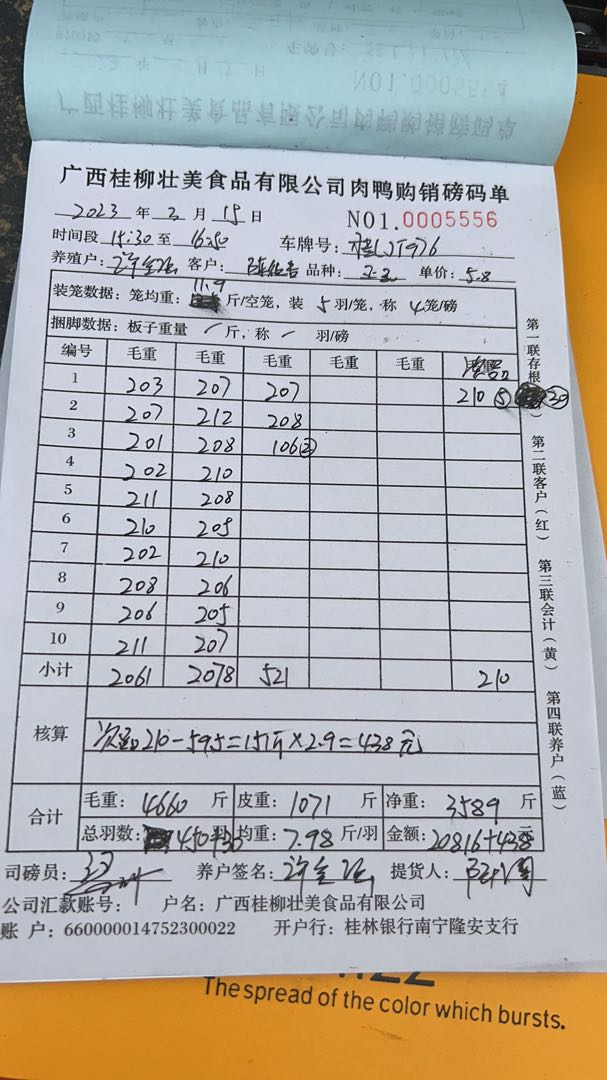 广西桂柳壮美食品有限公司肉鸭购销磅码单
2023 年 3 月 15 日 NO1.0005556
时间段 15:30 至 16:50 车牌号: 桂
养殖户: 许 客户: 陈 品种: 单价: 5.8
装笼数据: 笼均重: 11.9 斤/空笼, 装 5 羽/笼, 称 4 笼/磅
捆脚数据: 板子重量 / 斤, 称 / 羽/磅
编号 毛重 毛重 毛重 毛重 毛重
1 203 207 207 210 ⑤ ⑳
2 207 212 208
3 201 208 106②
4 202 210
5 211 208
6 210 205
7 202 210
8 208 206
9 206 205
10 211 207
小计 2061 2078 521 210
核算 210-59.5=151斤×2.9=438元
合计 毛重: 4660 斤 皮重: 1071 斤 净重: 3589 斤
总羽数: 450 羽 均重: 7.98 斤/羽 金额: 20816+438 元
司磅员: 养户签名: 许 提货人:
公司汇款账号: 户名: 广西桂柳壮美食品有限公司
账 户: 660000014752300022 开户行: 桂林银行南宁隆安支行
第一联存根
第二联客户(红)
第三联会计(黄)
第四联养户(蓝)
The spread of the color which bursts.